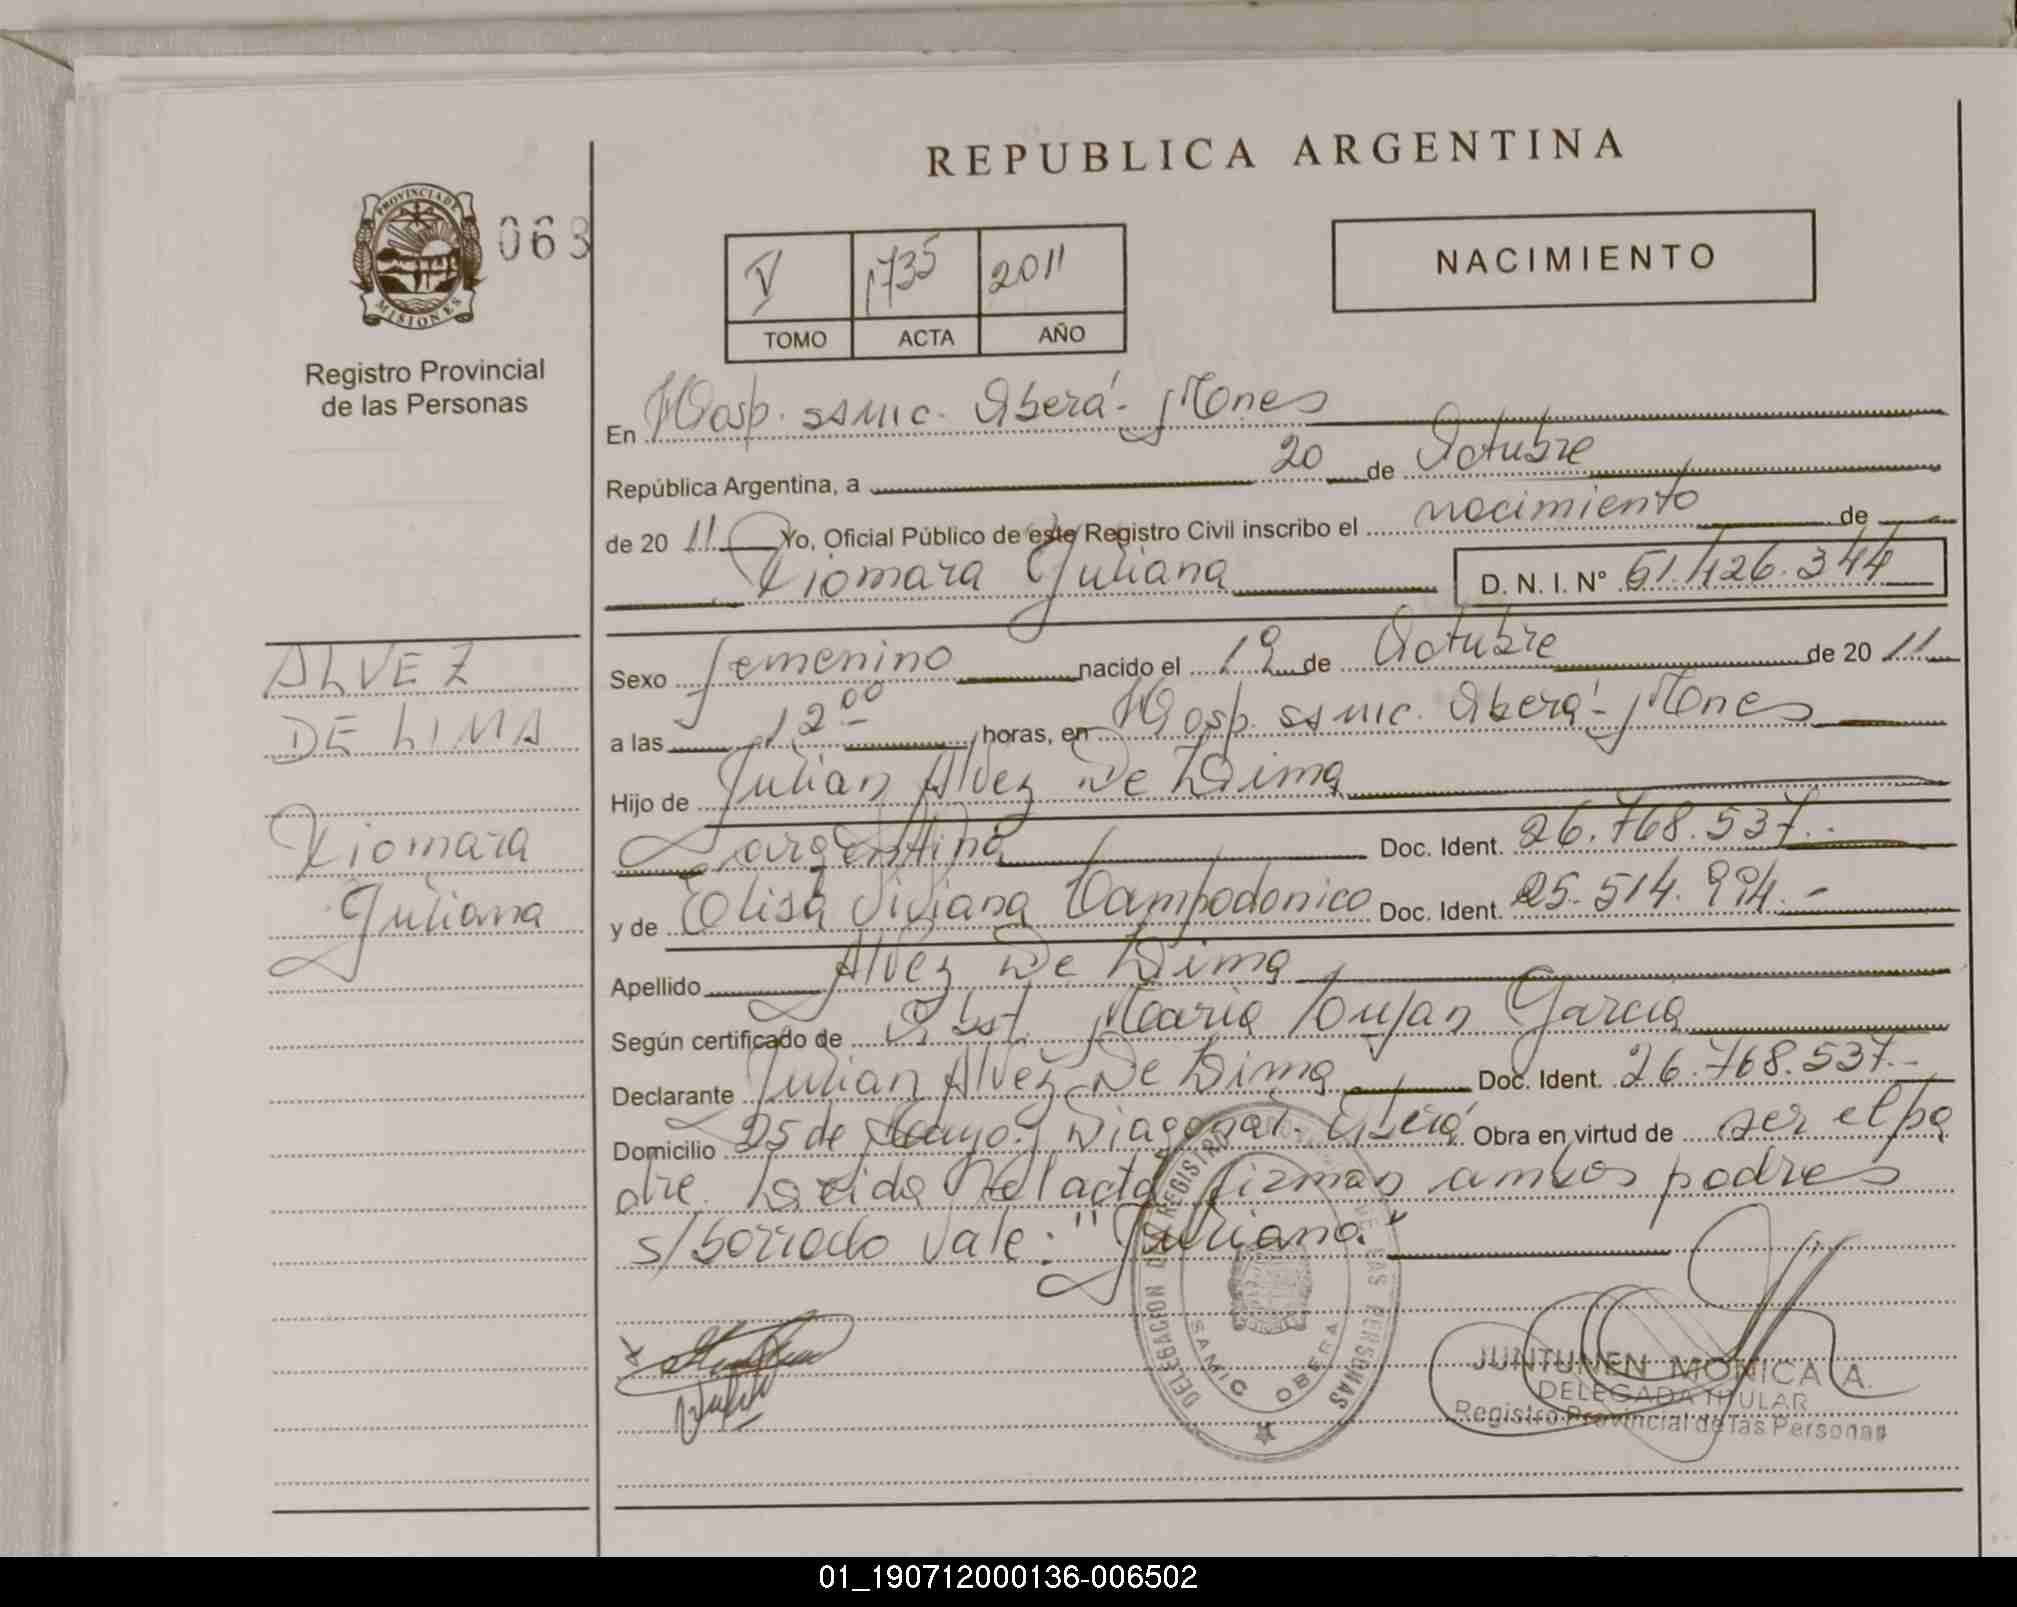 REPUBLICA ARGENTINA
PROVINCIA DE MISIONES
063
Registro Provincial
de las Personas
V 1735 2011
TOMO ACTA AÑO
NACIMIENTO
En Hosp. SAMIC. Oberá - Mones
República Argentina, a 20 de Octubre
de 2011 Yo, Oficial Público de este Registro Civil inscribo el nacimiento de
Xiomara Juliana D. N. I. Nº 51.426.344
ALVEZ
DE LIMA
Xiomara
Juliana
Sexo femenino nacido el 19 de Octubre de 2011
a las 12 00 horas, en Hosp. SAMIC. Oberá - Mones
Hijo de Julian Alvez De Lima
argentina Doc. Ident. 26.768.537.-
y de Elisa Viviana Campodonico Doc. Ident. 25.514.994.-
Apellido Alvez De Lima
Según certificado de Obst. Maria Lujan Garcia
Declarante Julian Alvez De Lima Doc. Ident. 26.768.537.-
Domicilio 25 de Mayo y Diagonal. Oberá Obra en virtud de ser el pa
dre. Leida el acta firman ambos padres
s/borrado vale: "Juliana."
DELEGACION DE REGISTRO DE LAS PERSONAS
SAMIC OBERA
JUNTUNEN MONICA A.
DELEGADA TITULAR
Registro Provincial de las Personas
01_190712000136-006502